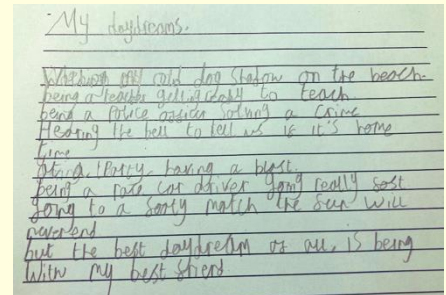 My daydreams.
my old dog Shadow on the beach.
being a teacher getting ready to teach
being a police officer solving a crime
Hearing the bell to tell us if it's home
time
at a party having a blast.
being a race car driver going really fast
going to a footy match the fun will
never end
but the best daydream of all is being
with my best friend